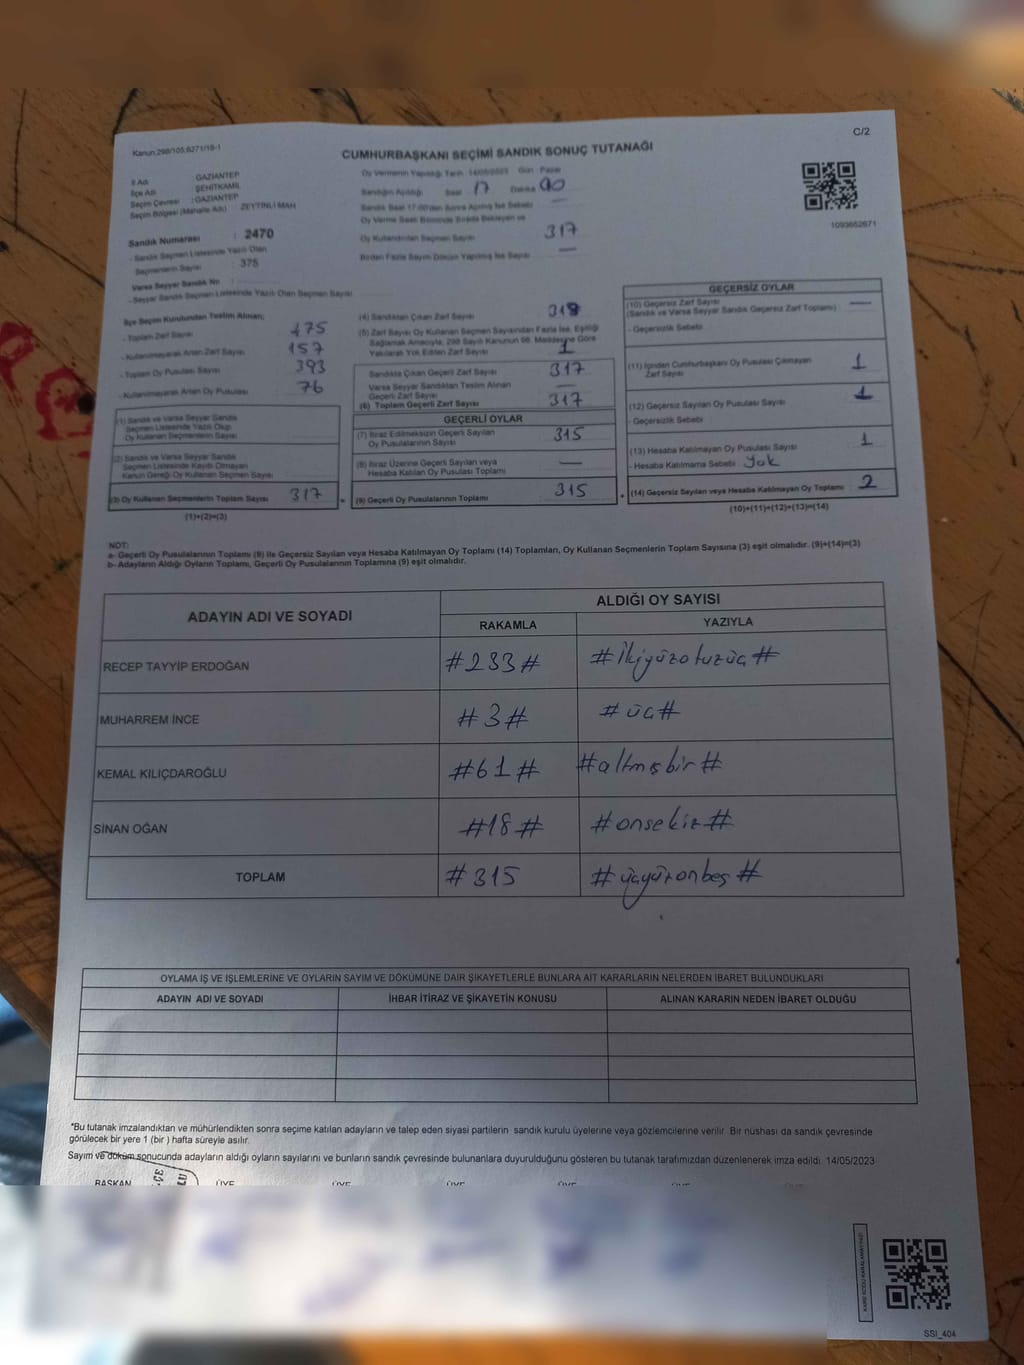 Kanun:298/105,6271/18-1
C/2
CUMHURBAŞKANI SEÇİMİ SANDIK SONUÇ TUTANAĞI
İl Adı GAZİANTEP
İlçe Adı ŞEHİTKAMİL
Seçim Çevresi : GAZİANTEP
Seçim Bölgesi (Mahalle Adı) : ZEYTİNLİ MAH
Sandık Numarası : 2470
- Sandık Seçmen Listesinde Yazılı Olan
Seçmenlerin Sayısı : 375
Varsa Seyyar Sandık No :
- Seyyar Sandık Seçmen Listesinde Yazılı Olan Seçmen Sayısı
Oy Vermenin Yapıldığı Tarih: 14/05/2023 Gün: Pazar
Sandığın Açıldığı Saat 17 Dakika 00
Sandık Saat 17:00'den Sonra Açılmış İse Sebebi
Oy Verme Saati Bitiminde Sırada Bekleyen ve
Oy Kullandırılan Seçmen Sayısı 317
Birden Fazla Sayım Döküm Yapılmış İse Sayısı —
1093652671
İlçe Seçim Kurulundan Teslim Alınan;
- Toplam Zarf Sayısı 475
- Kullanılmayarak Artan Zarf Sayısı 157
- Toplam Oy Pusulası Sayısı 393
- Kullanılmayarak Artan Oy Pusulası 76
(1) Sandık ve Varsa Seyyar Sandık
Seçmen Listesinde Yazılı Olup
Oy Kullanan Seçmenlerin Sayısı
(2) Sandık ve Varsa Seyyar Sandık
Seçmen Listesinde Kayıtlı Olmayan
Kanun Gereği Oy Kullanan Seçmen Sayısı
(3) Oy Kullanan Seçmenlerin Toplam Sayısı 317
(1)+(2)=(3)
(4) Sandıktan Çıkan Zarf Sayısı 318
(5) Zarf Sayısı Oy Kullanan Seçmen Sayısından Fazla İse, Eşitliği
Sağlamak Amacıyla, 298 Sayılı Kanunun 98. Maddesine Göre
Yakılarak Yok Edilen Zarf Sayısı 1
Sandıkta Çıkan Geçerli Zarf Sayısı 317
Varsa Seyyar Sandıktan Teslim Alınan
Geçerli Zarf Sayısı —
(6) Toplam Geçerli Zarf Sayısı 317
GEÇERLİ OYLAR
(7) İtiraz Edilmeksizin Geçerli Sayılan
Oy Pusulalarının Sayısı 315
(8) İtiraz Üzerine Geçerli Sayılan veya
Hesaba Katılan Oy Pusulası Toplamı —
(9) Geçerli Oy Pusulalarının Toplamı 315
GEÇERSİZ OYLAR
(10) Geçersiz Zarf Sayısı —
(Sandık ve Varsa Seyyar Sandık Geçersiz Zarf Toplamı)
- Geçersizlik Sebebi
(11) İçinden Cumhurbaşkanı Oy Pusulası Çıkmayan
Zarf Sayısı 1
(12) Geçersiz Sayılan Oy Pusulası Sayısı 1
- Geçersizlik Sebebi
(13) Hesaba Katılmayan Oy Pusulası Sayısı 1
- Hesaba Katılmama Sebebi Yok
(14) Geçersiz Sayılan veya Hesaba Katılmayan Oy Toplamı 2
(10)+(11)+(12)+(13)=(14)
NOT:
a- Geçerli Oy Pusulalarının Toplamı (9) ile Geçersiz Sayılan veya Hesaba Katılmayan Oy Toplamı (14) Toplamları, Oy Kullanan Seçmenlerin Toplam Sayısına (3) eşit olmalıdır. (9)+(14)=(3)
b- Adayların Aldığı Oyların Toplamı, Geçerli Oy Pusulalarının Toplamına (9) eşit olmalıdır.
ADAYIN ADI VE SOYADI
ALDIĞI OY SAYISI
RAKAMLA YAZIYLA
RECEP TAYYİP ERDOĞAN #233# #İkiyüzotuzüç#
MUHARREM İNCE #3# #üç#
KEMAL KILIÇDAROĞLU #61# #altmışbir#
SİNAN OĞAN #18# #onsekiz#
TOPLAM #315 #üçyüzonbeş#
OYLAMA İŞ VE İŞLEMLERİNE VE OYLARIN SAYIM VE DÖKÜMÜNE DAİR ŞİKAYETLERLE BUNLARA AİT KARARLARIN NELERDEN İBARET BULUNDUKLARI
ADAYIN ADI VE SOYADI İHBAR İTİRAZ VE ŞİKAYETİN KONUSU ALINAN KARARIN NEDEN İBARET OLDUĞU
*Bu tutanak imzalandıktan ve mühürlendikten sonra seçime katılan adayların ve talep eden siyasi partilerin sandık kurulu üyelerine veya gözlemcilerine verilir. Bir nüshası da sandık çevresinde
görülecek bir yere 1 (bir ) hafta süreyle asılır.
Sayım ve döküm sonucunda adayların aldığı oyların sayılarını ve bunların sandık çevresinde bulunanlara duyurulduğunu gösteren bu tutanak tarafımızdan düzenlenerek imza edildi. 14/05/2023
BAŞKAN ÜYE ÜYE ÜYE ÜYE ÜYE ÜYE
SSI_404